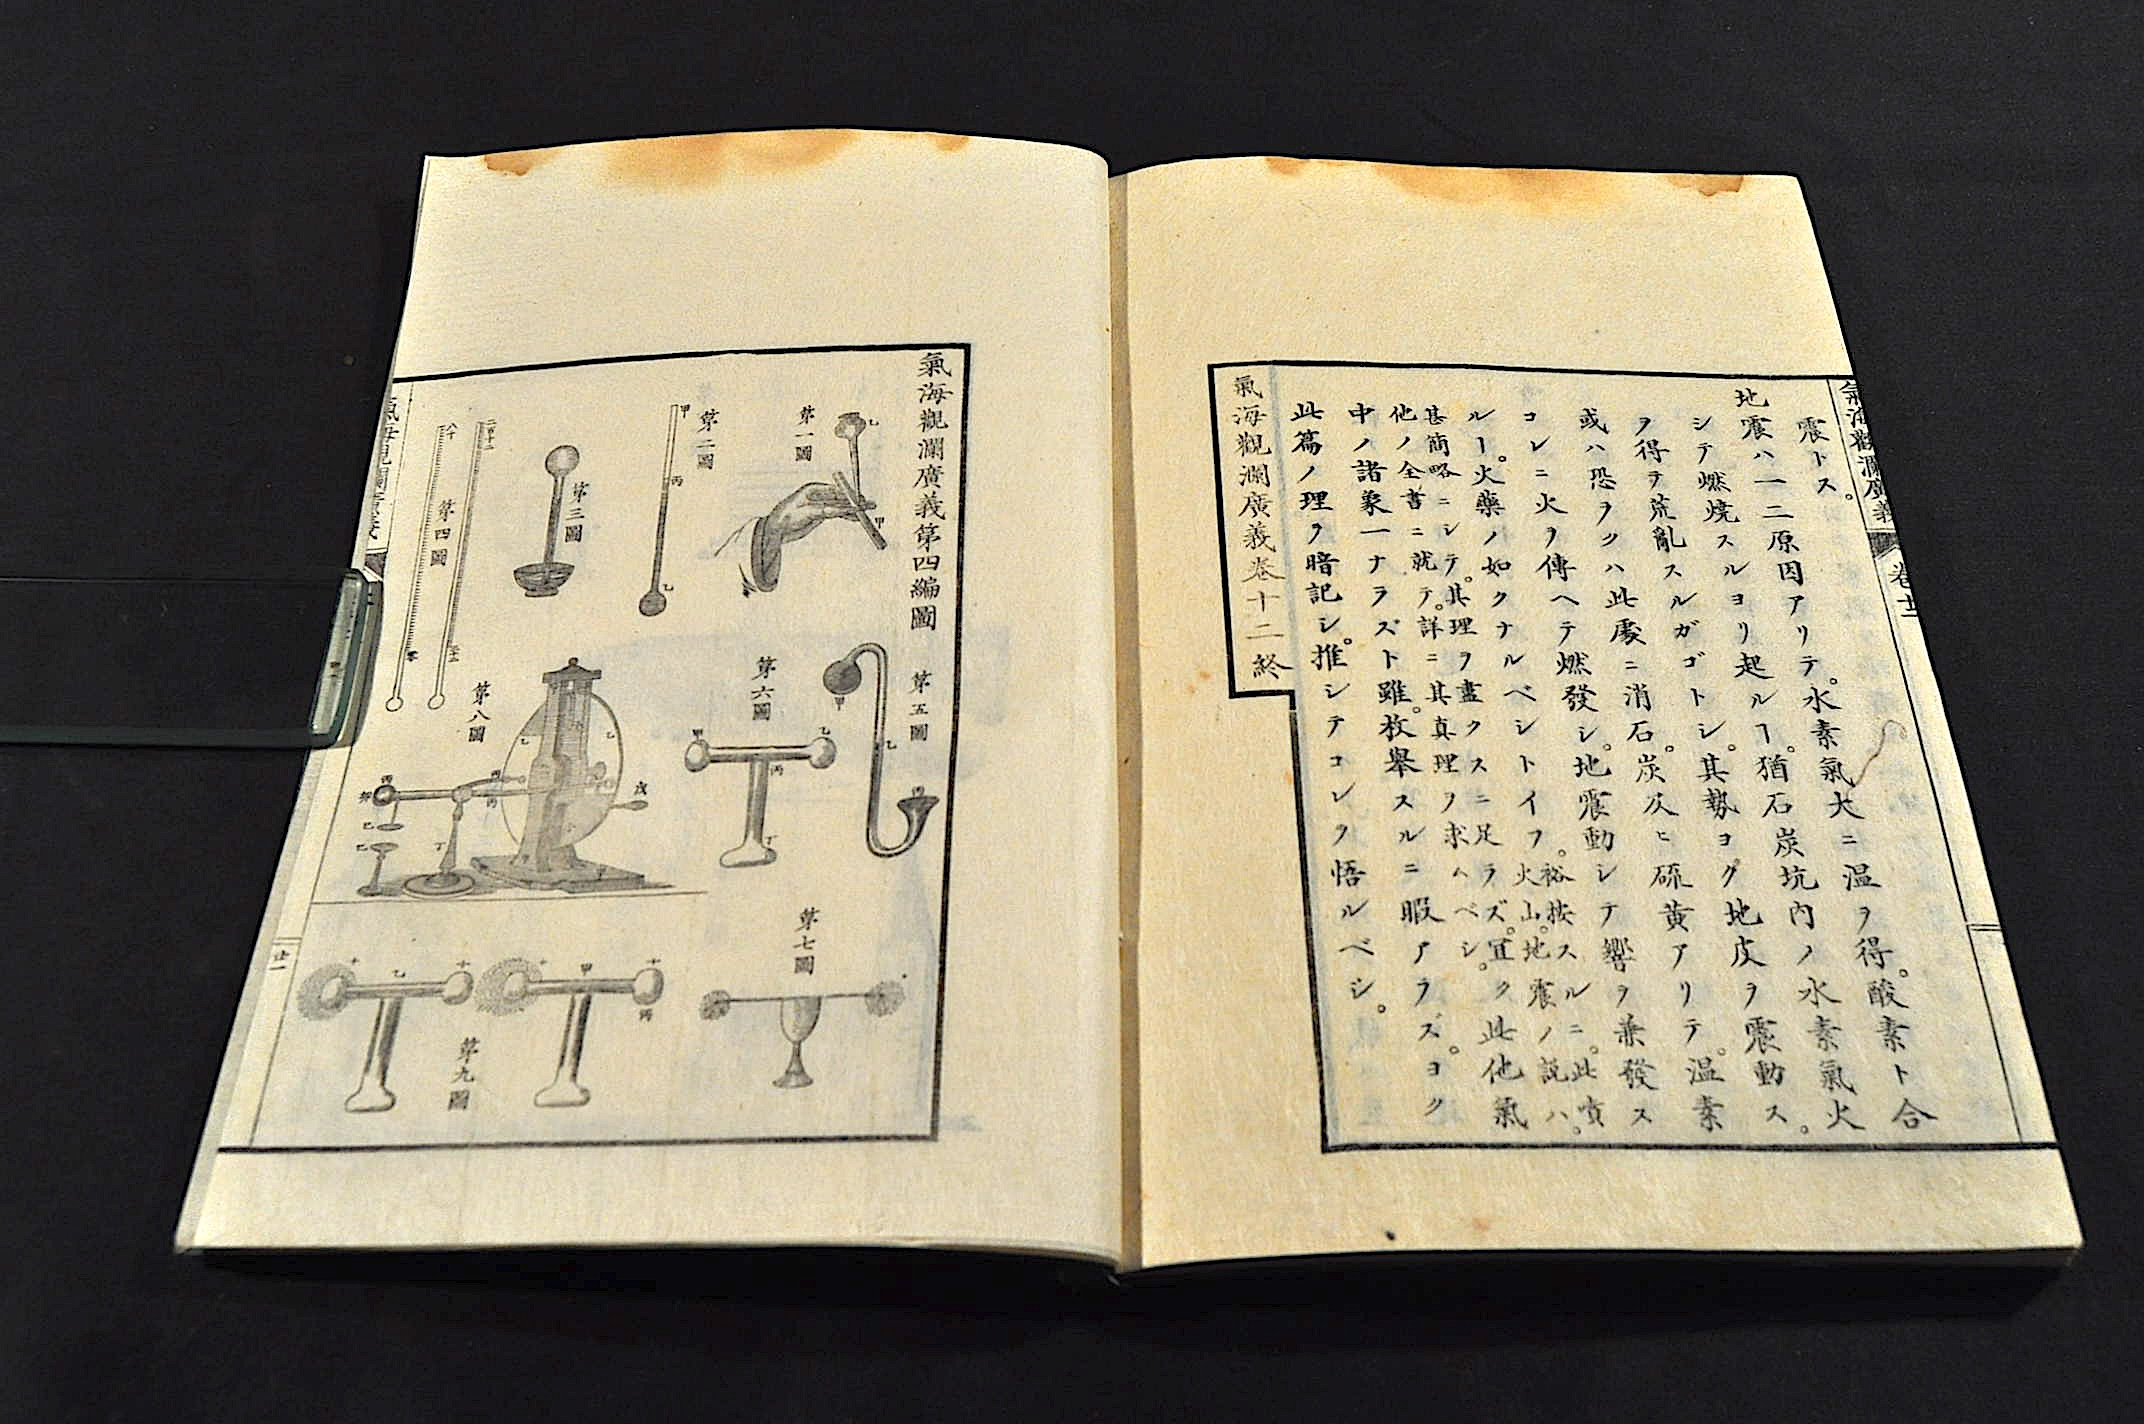 氣海觀瀾廣義
卷十二
震トス。
地震ハ一二原因アリテ。水素氣大ニ温ヲ得。酸素ト合
シテ燃燒スルヨリ起ルー。猶石炭坑内ノ水素氣火
ヲ得テ荒亂スルガゴトシ。其勢ヨク地皮ヲ震動ス。
或ハ恐ラクハ此處ニ消石。炭及ヒ硫黄アリテ。温素
コレニ火ヲ傳ヘテ燃發シ。地震動シテ響ヲ兼發ス
ルー。火藥ノ如クナルベシトイフ。裕按スルニ。此噴
火山。地震ノ説ハ。
甚簡略ニシテ。其理ヲ盡クスニ足ラズ。宜ク此他氣
他ノ全書ニ就テ。詳ニ其真理ヲ求ムベシ。
中ノ諸象一ナラズト雖。枚舉スルニ暇アラズ。ヨク
此篇ノ理ヲ暗記シ。推シテコレヲ悟ルベシ。
氣海觀瀾廣義卷十二終
氣海觀瀾廣義第四編圖
第一圖
乙
甲
第二圖
甲
丙
乙
第三圖
第四圖
二百十二
三十二
八十
零
第五圖
甲
乙
丙
第六圖
甲
乙
丙
丁
第八圖
乙
乙
丙
丙
丙
戊
丁
己
第七圖
第九圖
甲
丙
乙
廿一